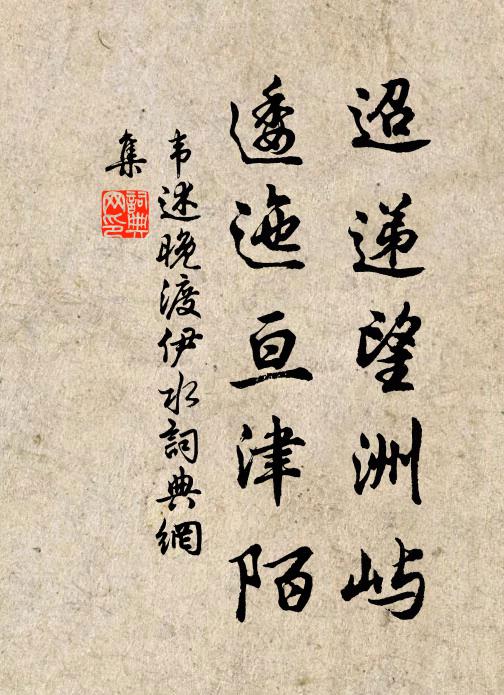 迢递望洲屿
逶迤亘津陌
韦述晚渡伊水詞典網
集
詞典
网印